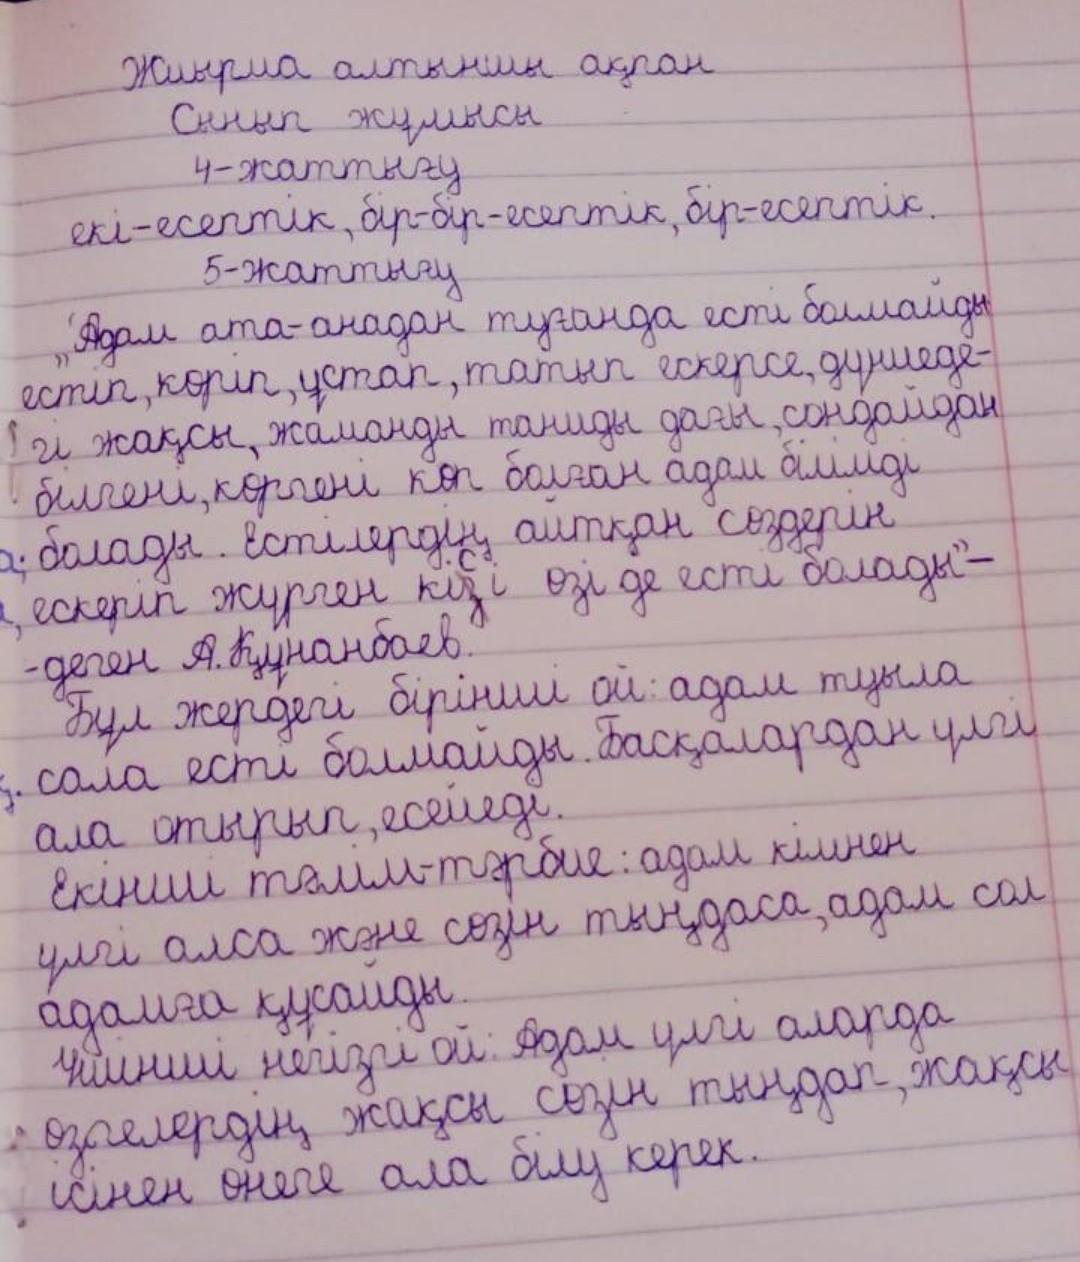 Жиырма алтыншы ақпан
Сынып жұмысы
4-жаттығу
екі-есептік, бір-бір-есептік, бір-есептік.
5-жаттығу
„Адам ата-анадан туғанда есті болмайды
естіп, көріп, ұстап, татып ескерсе, дүниеде-
гі жақсы, жаманды таниды дағы, сондайдан
білгені, көргені көп болған адам білімді
болады. Естілердің айтқан сөздерін
ескеріп жүрген кісі өзі де есті болады"-
-деген А. Құнанбаев.
Бұл жердегі бірінші ой: адам туыла
сала есті болмайды. Басқалардан үлгі
ала отырып, есейеді.
Екінші тәлім-тәрбие: адам кімнен
үлгі алса және сөзін тыңдаса, адам сол
адамға құсайды.
Үшінші негізгі ой: Адам үлгі аларда
өзгелердің жақсы сөзін тыңдап, жақсы
ісінен өнеге ала білу керек.